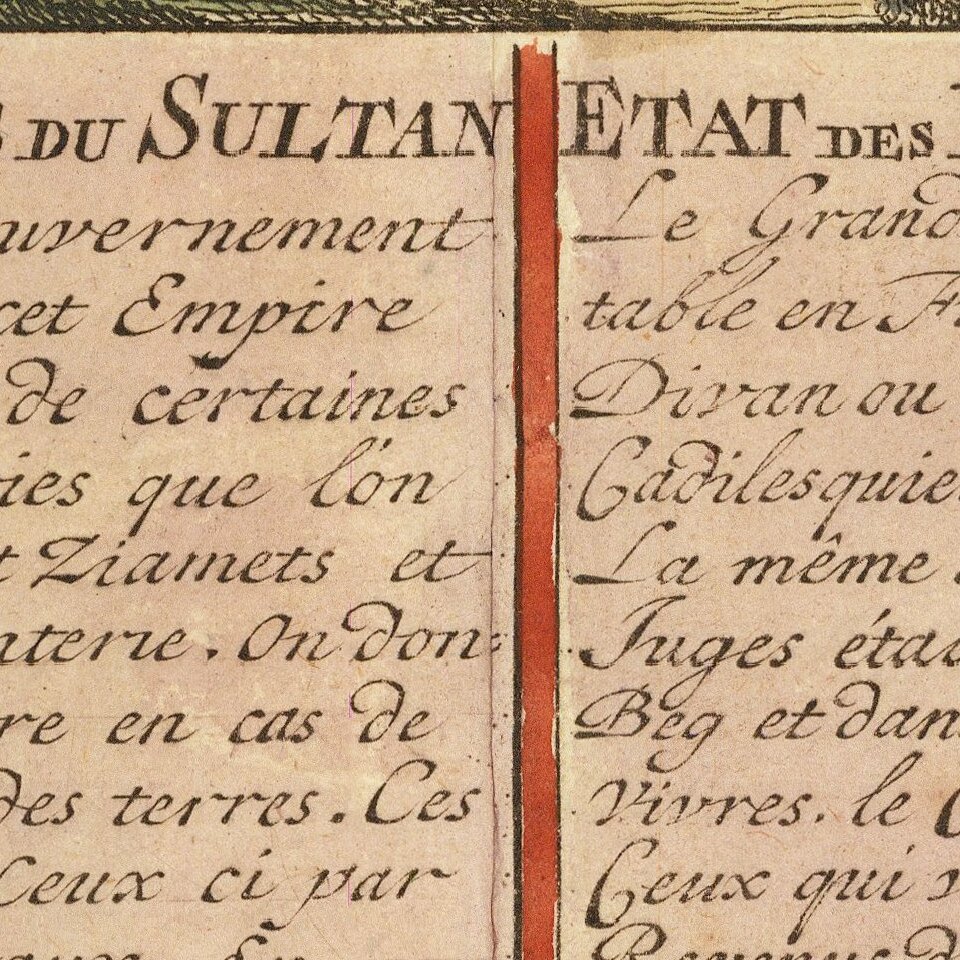 DU SULTAN
uvernement
cet Empire
de certaines
ies que l'on
t Ziamets et
nterie. On don-
re en cas de
des terres. Ces
Ceux ci par
ETAT DES
Le Grand
table en F
Divan ou
Cadilesquie
La même
Juges éta
Beg et dan
Vivres. le
Ceux qui
Revenus d